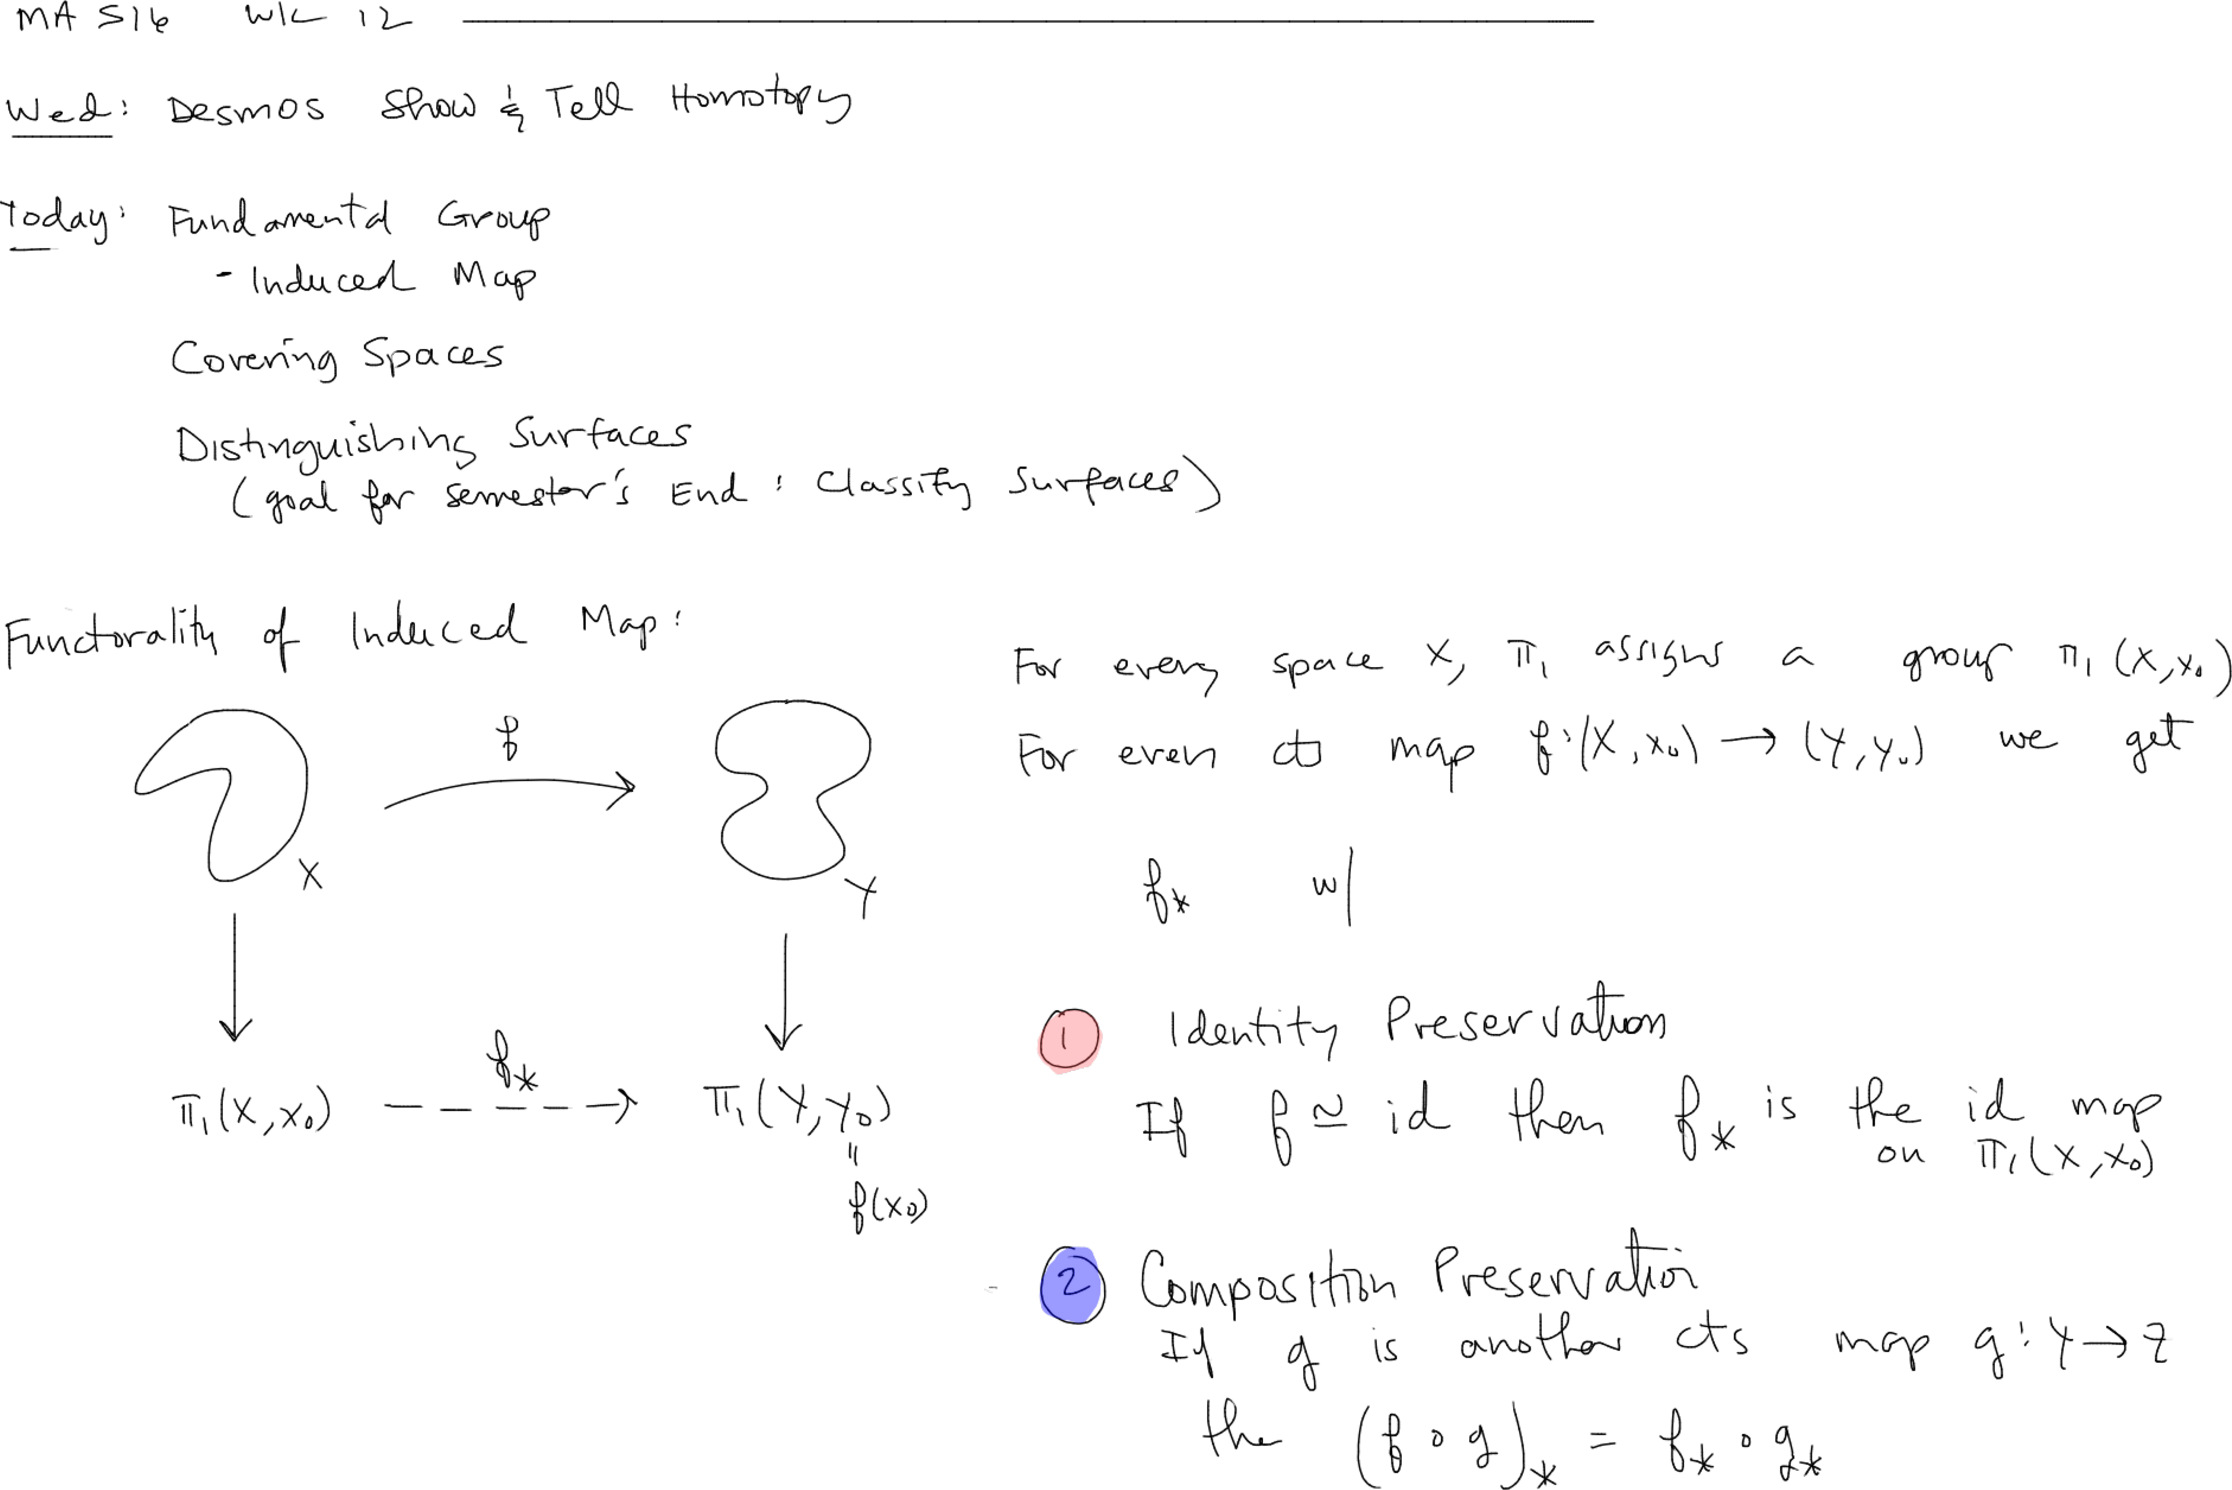 MA 516 WK 12
Wed: Desmos Show & Tell Homotopy
Today: Fundamental Group
- Induced Map
Covering Spaces
Distinguishing Surfaces
(goal for semester's End: Classify Surfaces)
Functorality of Induced Map:
f
X
Y
f_*
π₁(X,x₀) ----> π₁(Y,y₀)
"
f(x₀)
For every space X, π₁ assigns a group π₁(X,x₀)
For even cts map f:(X,x₀) → (Y,y₀) we get
f_* w/
1 Identity Preservation
If f ≃ id then f_* is the id map
on π₁(X,x₀)
2 Composition Preservation
If g is another cts map g:Y→Z
the (f∘g)_* = f_*∘g_*